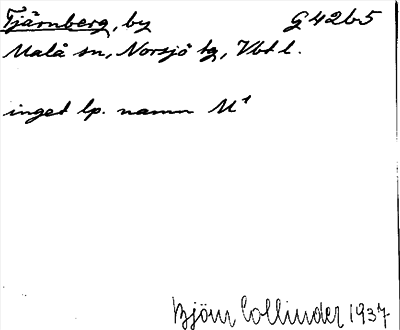 Tjärnberg, by G 42 b5
Malå sn, Norsjö tg, Vbt l.
inget lp. namn M¹
Björn Collinder 1937